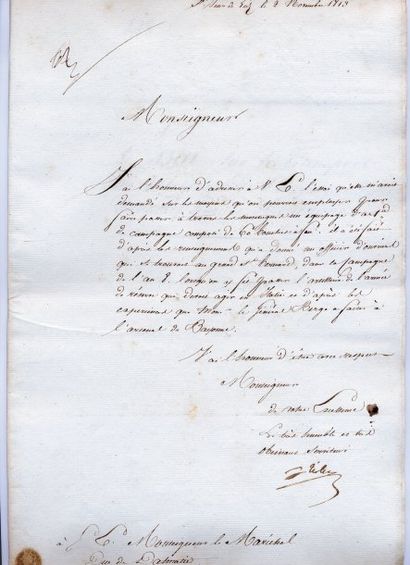 St Jean de Luz le 2 Novembre 1813
Monseigneur
J'ai l'honneur d'adresser à V. E. l'essai qu'elle m'avait
demandé sur les moyens qu'on pourrait employer pour
faire passer à travers les montagnes un équipage d'artie
de campagne composé de bouches à feu il a été fait
d'après les renseignements qu'a donné un officier d'ouvriers
qui se trouvait au grand St Bernard, dans la campagne
de l'an 8, lorsqu'on y fit passer l'artillerie de l'armée
de réserve qui devait agir en Italie et d'après les
expériences que Monr le général Berge a faites à
l'arsenal de Bayonne.
J'ai l'honneur d'être avec respect
Monseigneur
de votre Excellence
Le très humble et très
obéissant serviteur
à S. E. Monseigneur le Maréchal
Duc de Dalmatie